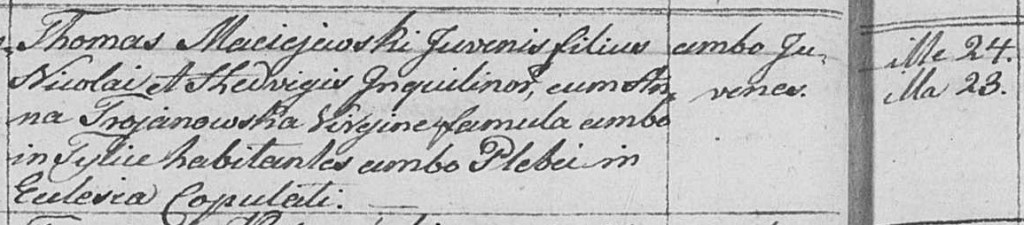 Thomas Maciejewski Juvenis filius
Nicolai et Hedvigis Inquilinor, cum An,
na Trojanowska Virgine famula ambo
in Tylice habitantes ambo Plebei in
Eclesia Copulati.
ambo Ju-
venes.
ille 24.
illa 23.